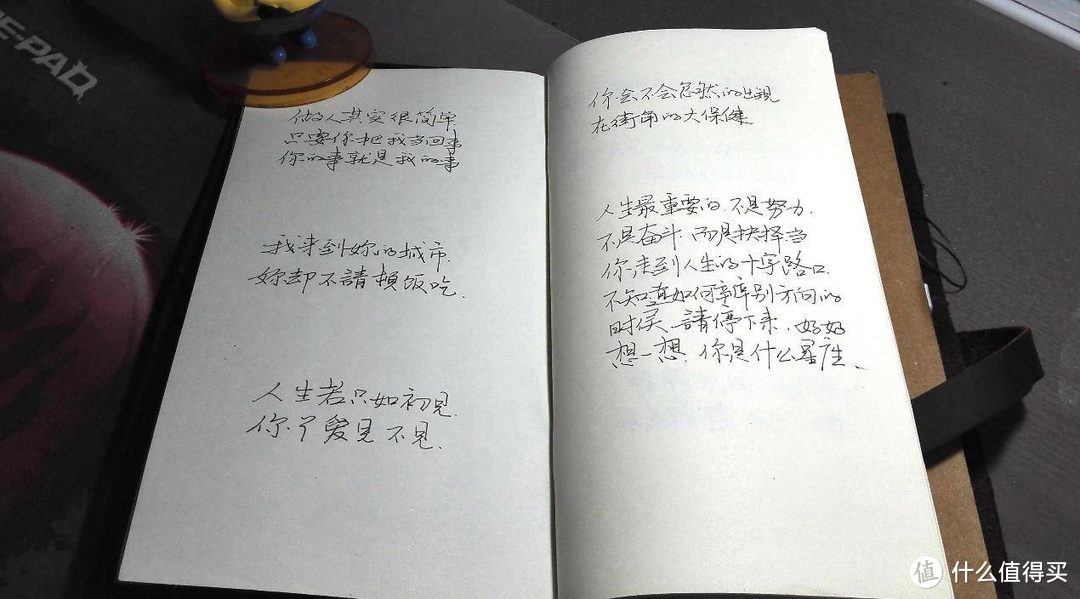 E-PAD
做人其实很简单
只要你把我当回事
你的事就是我的事
我来到妳的城市.
妳却不請頓饭吃.
人生若只如初見.
你丫愛見不見.
你会不会忽然的出現
在街角的大保健
人生最重要的.不是努力.
不是奋斗.而是抉择当
你走到人生的十字路口.
不知道如何辨别方向的
时候.請停下来.好好
想一想.你是什么星座.
值 什么值得买